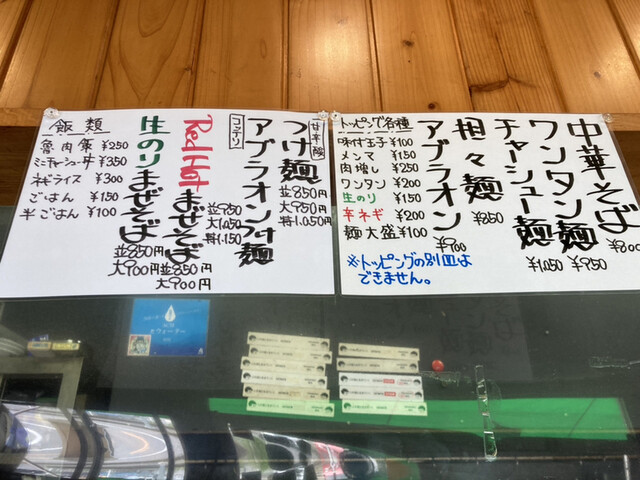 中華そば
¥800
ワンタン麺
¥950
チャーシュー麺
¥1,050
担々麺
¥850
アブラオン
¥900
トッピング各種
味付玉子 ¥100
メンマ ¥150
肉増し ¥250
ワンタン ¥200
生のり ¥150
辛ネギ ¥200
麺大盛 ¥100
※トッピングの別皿は
できません。
甘辛酸
つけ麺
並850円
大950円
特1,050円
コッテリ
アブラオンつけ麺
並950
大1,050
特1,150
Red Hot まぜそば
並850円
大900円
生のり まぜそば
並850円
大900円
飯類
魯肉飯 ¥250
ミニチャーシュー丼 ¥350
ネギライス ¥300
ごはん ¥150
半ごはん ¥100